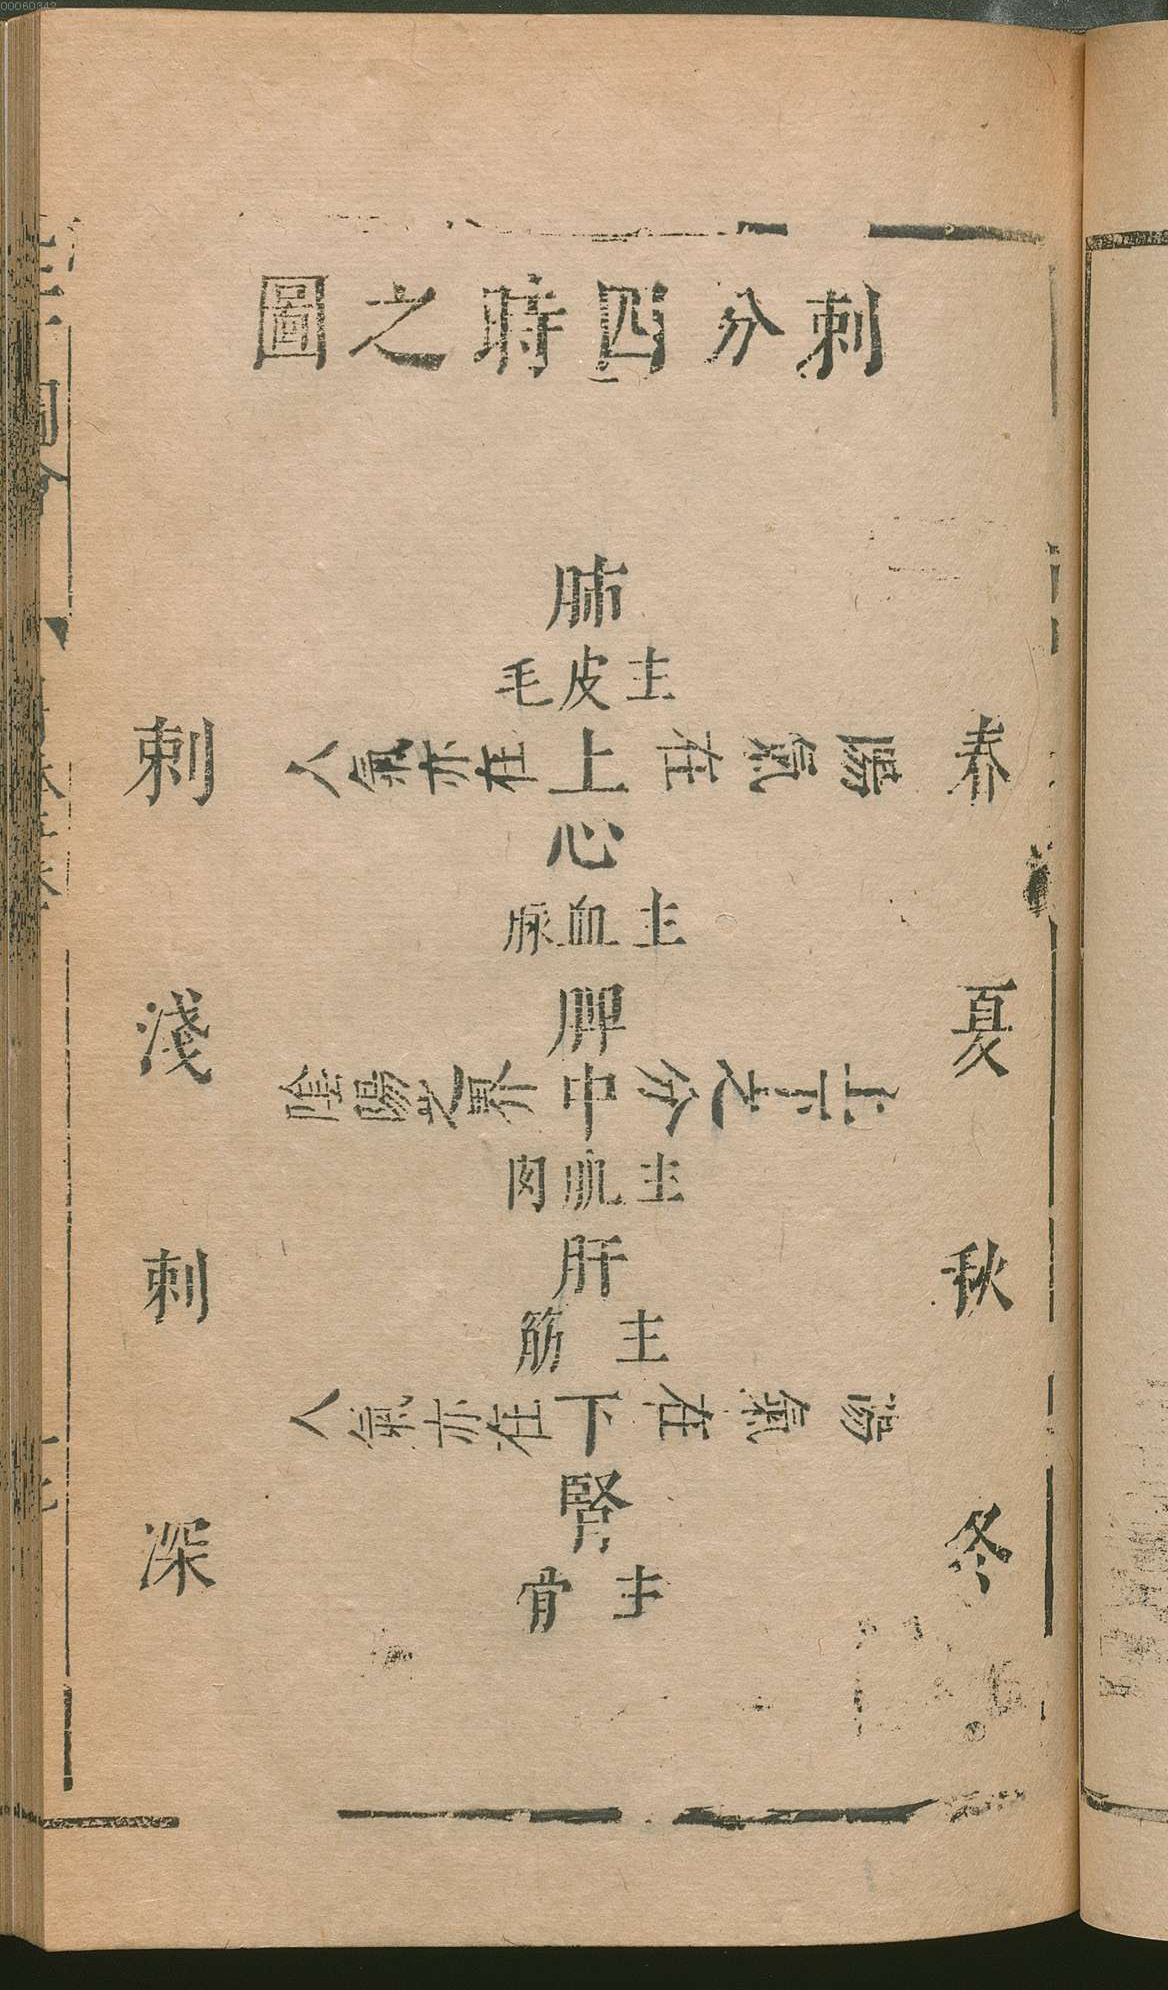 刺分四時之圖
春夏秋冬
肺
主皮毛
陽氣在上
人氣亦在
心
主血脉
脾
上下之分中
陰陽之界
主肌肉
肝
主筋
陽氣在下
人氣亦在
腎
主骨
刺淺刺深
00060342